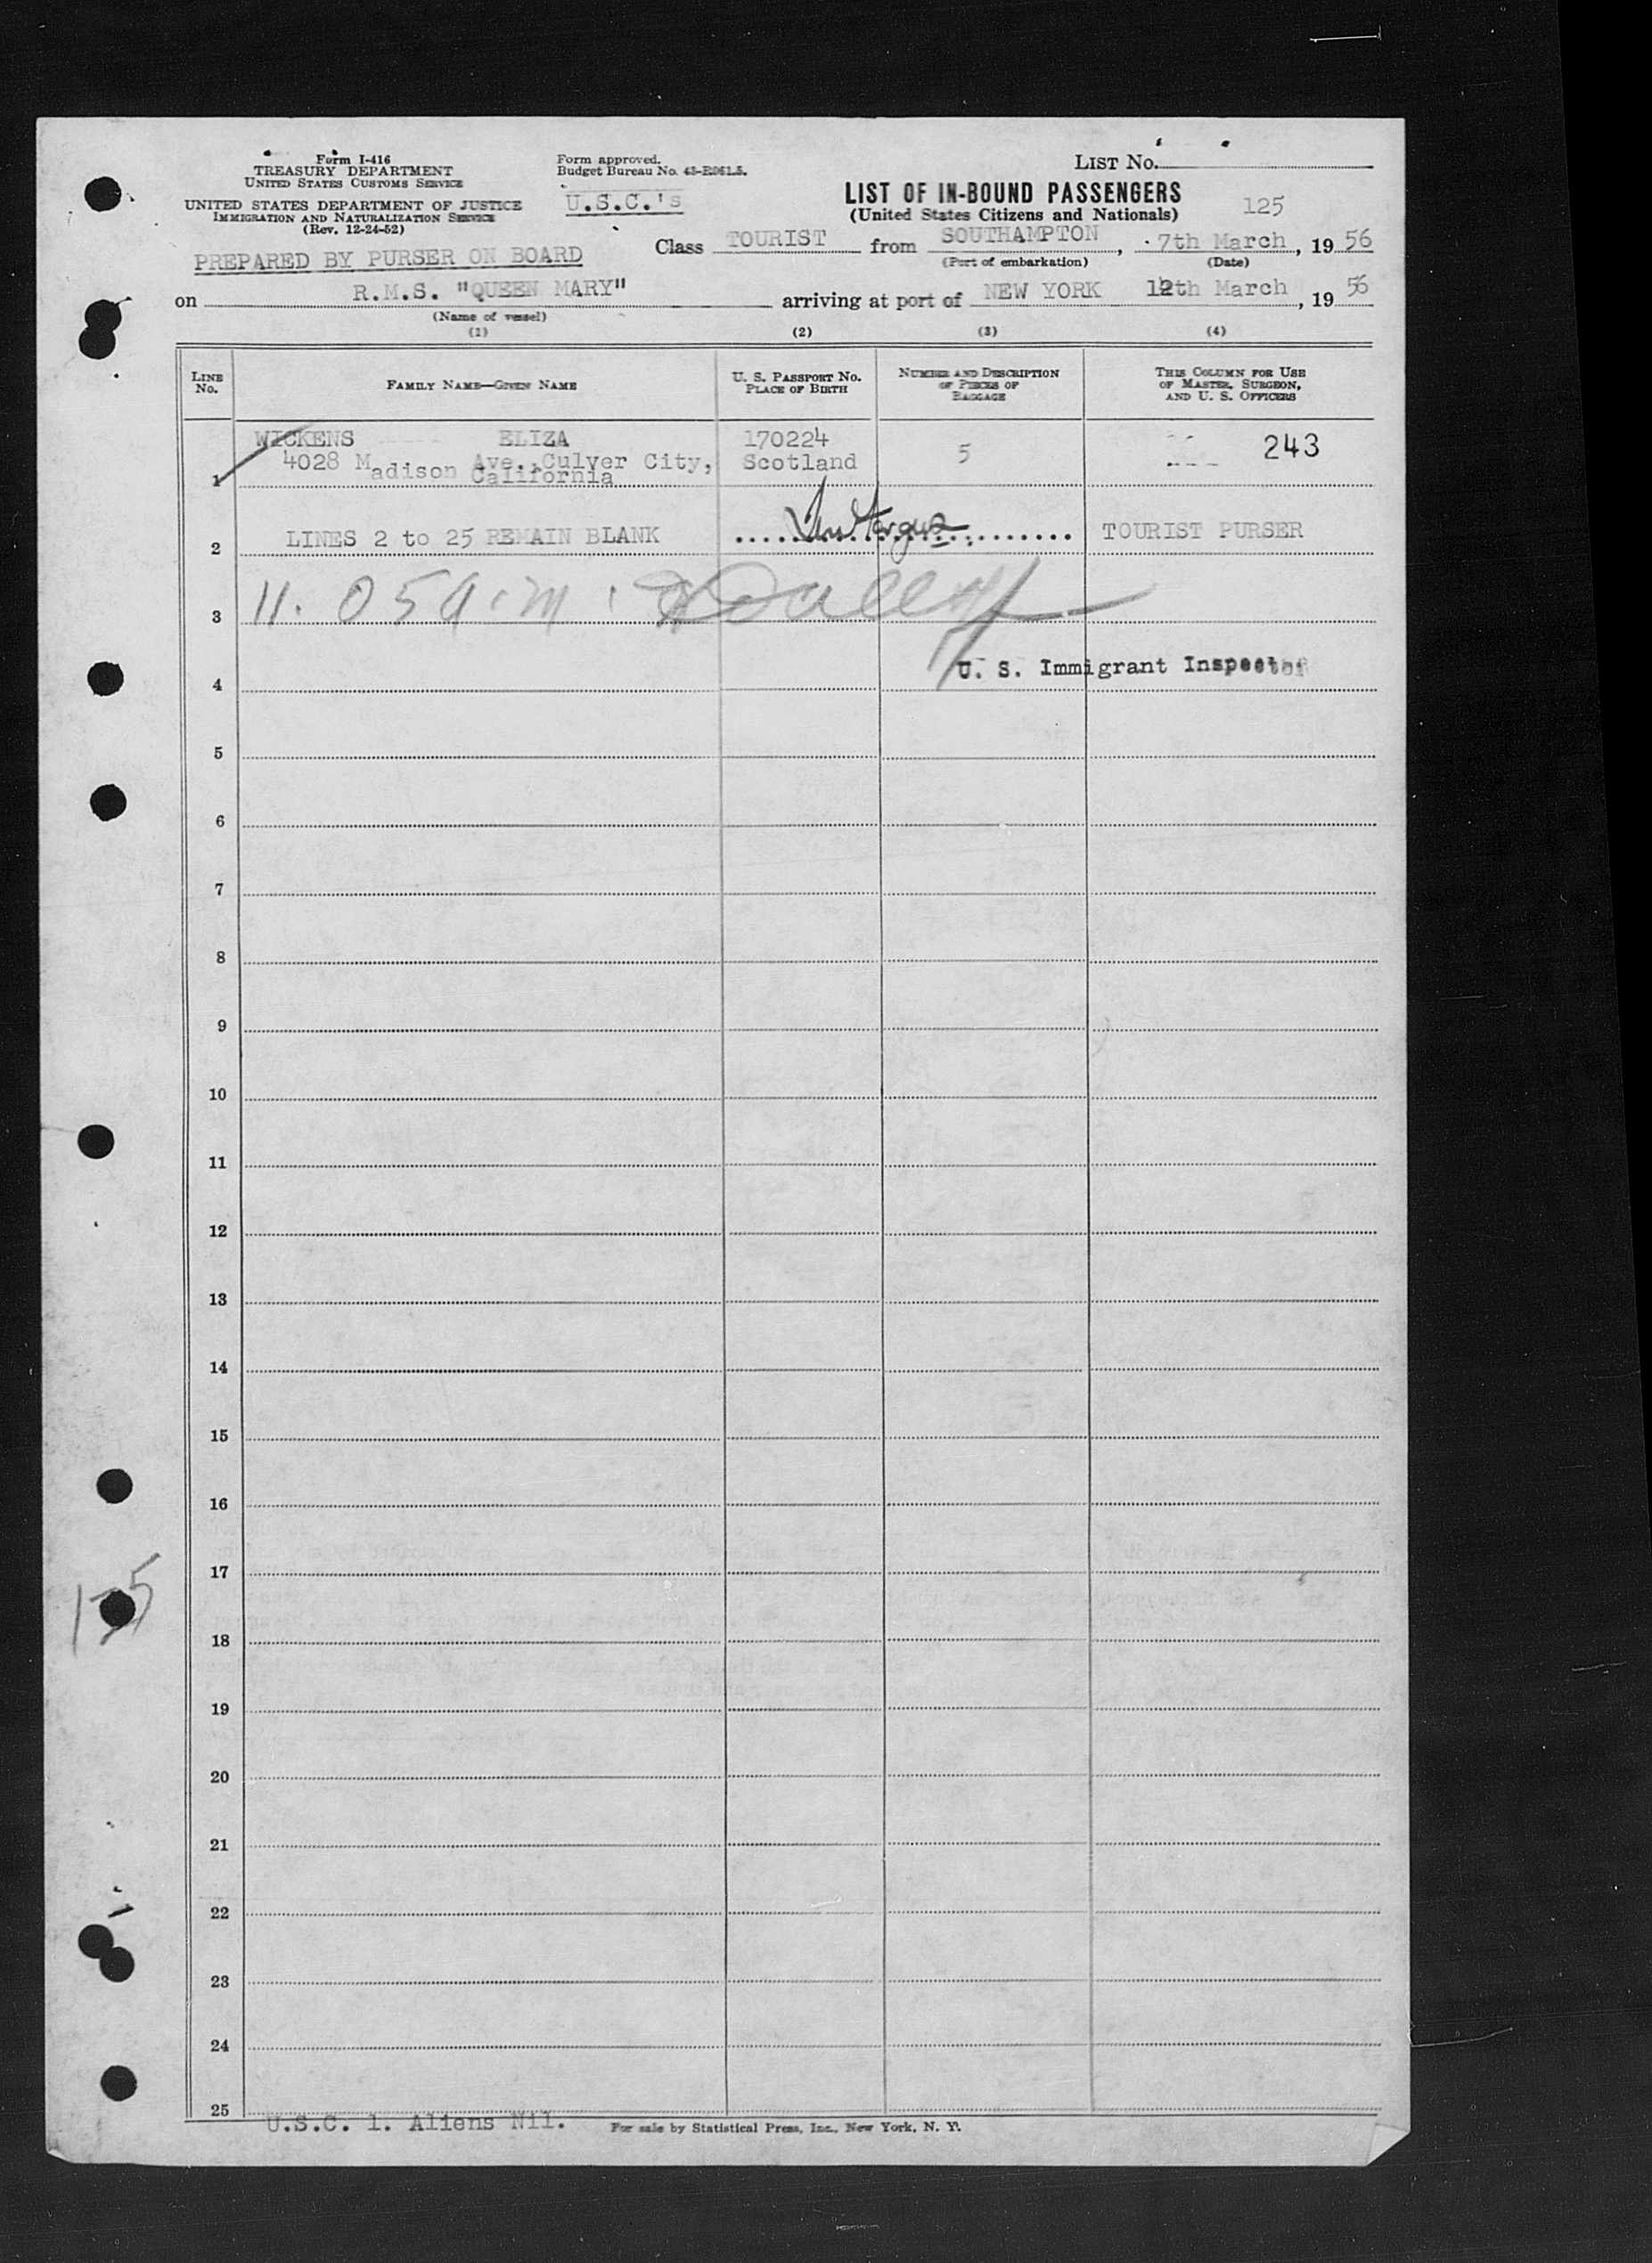 Form I-416
TREASURY DEPARTMENT
UNITED STATES CUSTOMS SERVICE
UNITED STATES DEPARTMENT OF JUSTICE
IMMIGRATION AND NATURALIZATION SERVICE
(Rev. 12-24-52)
Form approved.
Budget Bureau No. 43-R061.5.
U.S.C.'s
LIST NO.
LIST OF IN-BOUND PASSENGERS
(United States Citizens and Nationals)
125
PREPARED BY PURSER ON BOARD
Class TOURIST from SOUTHAMPTON, 7th March, 1956
(Port of embarkation) (Date)
on R.M.S. "QUEEN MARY" arriving at port of NEW YORK 12th March, 1956
(Name of vessel)
(1) (2) (3) (4)
LINE NO.
FAMILY NAME—GIVEN NAME
U. S. PASSPORT NO.
PLACE OF BIRTH
NUMBER AND DESCRIPTION
OF PIECES OF
BAGGAGE
THIS COLUMN FOR USE
OF MASTER, SURGEON,
AND U. S. OFFICERS
WICKENS ELIZA 170224 243
4028 Madison Ave., Culver City, Scotland 5
1 California
2 LINES 2 to 25 REMAIN BLANK TOURIST PURSER
3 11.05 a.m.
U. S. Immigrant Inspector
4
5
6
7
8
9
10
11
12
13
14
15
16
17
125
18
19
20
21
22
23
24
25
U.S.C. 1. Aliens Nil. For sale by Statistical Press, Inc., New York, N. Y.